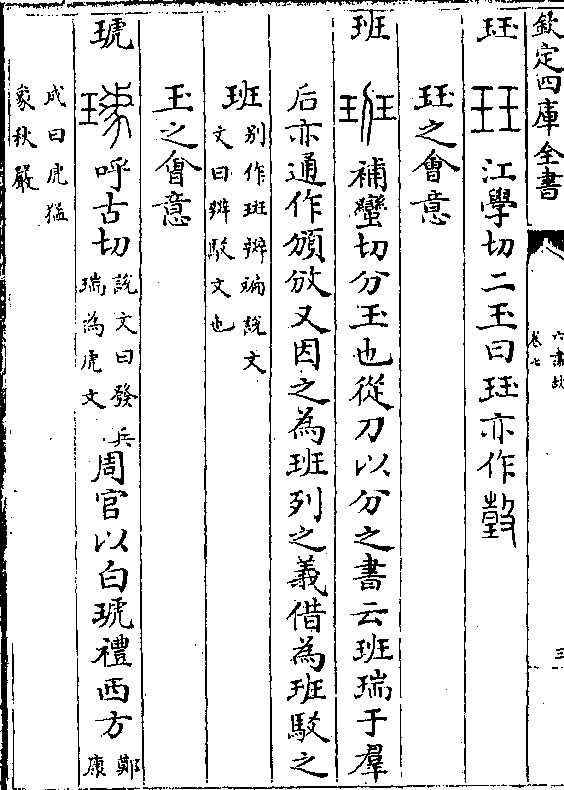 欽定四庫全書
六書故
卷七
三
玨 江學切二玉曰玨亦作㱿
玨之㑹意
班 補蠻切分玉也從刀以分之書云班瑞于羣
后亦通作頒攽又因之為班列之義借為班駮之
班别作斑辬㻞說文
文曰辬駁文也
玉之㑹意
琥 呼古切說文曰發兵
瑞為虎文周官以白琥禮西方鄭
康
成曰虎猛
象秋嚴